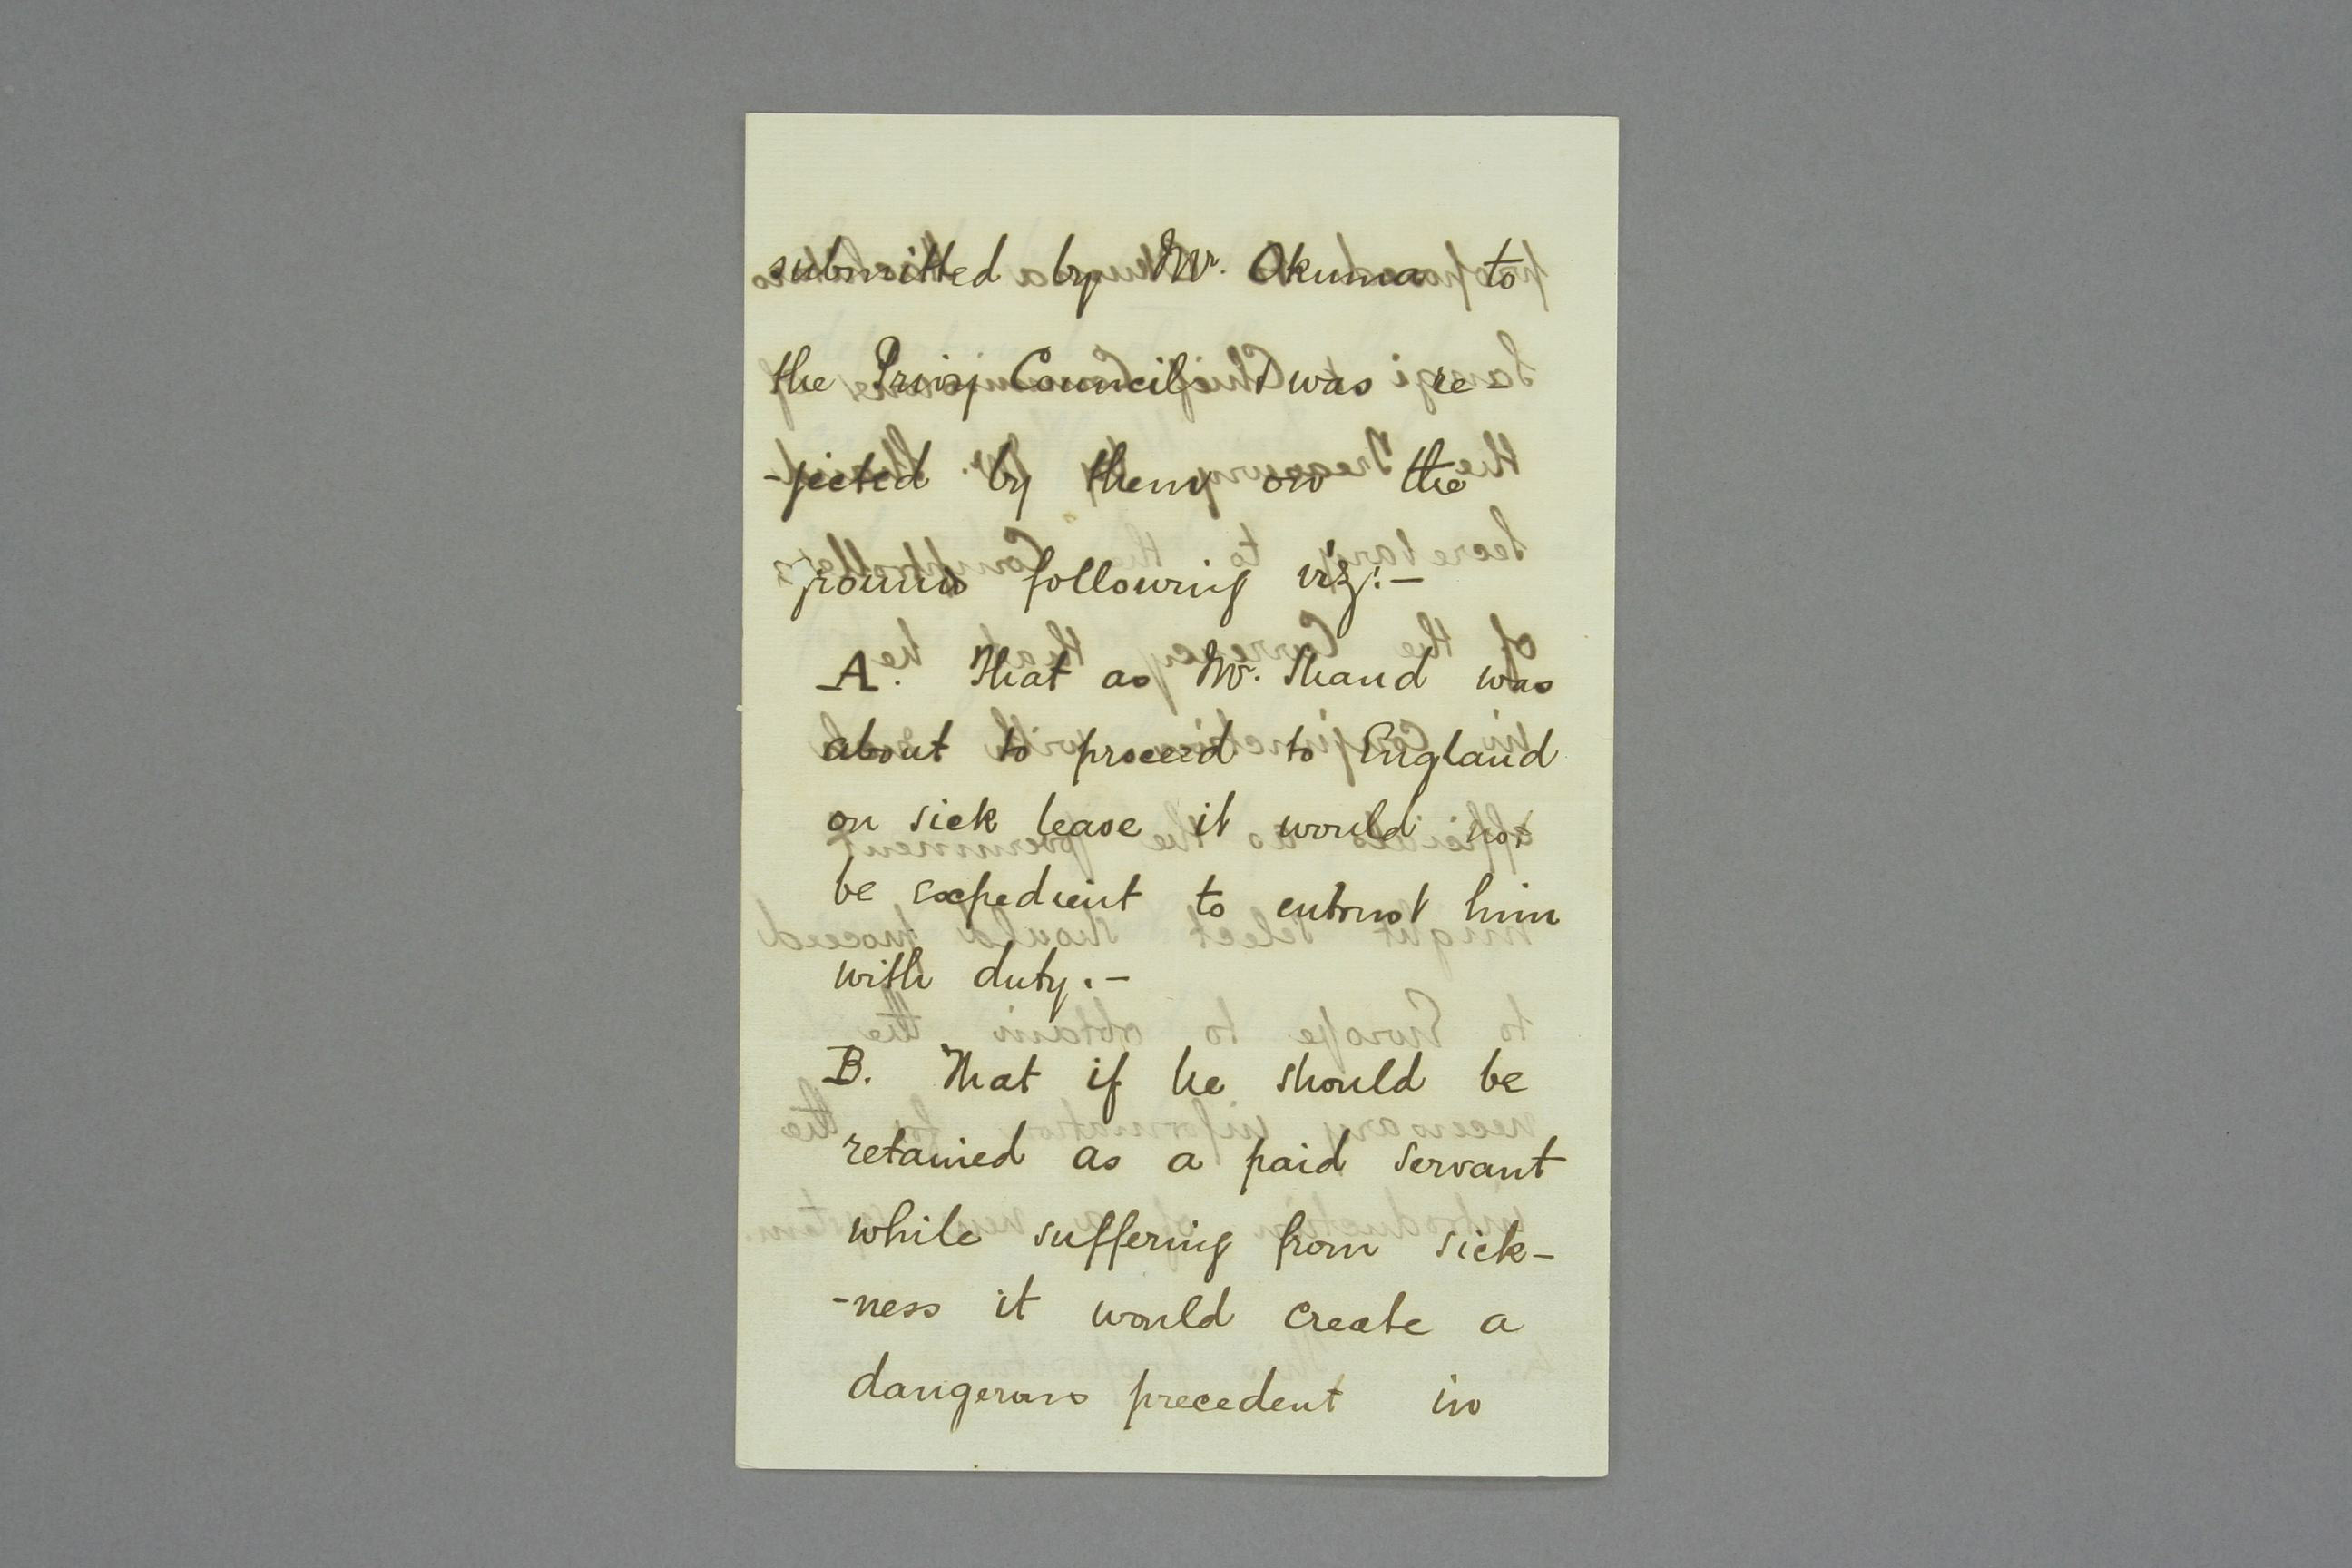 submitted by Mr. Okuma to
the Privy Council & was re-
-jected by them on the
grounds following viz:—
A. That as Mr. Shand was
about to proceed to England
on sick lease it would not
be expedient to entrust him
with duty.—
B. That if he should be
retained as a paid servant
while suffering from sick-
-ness it would create a
dangerous precedent in